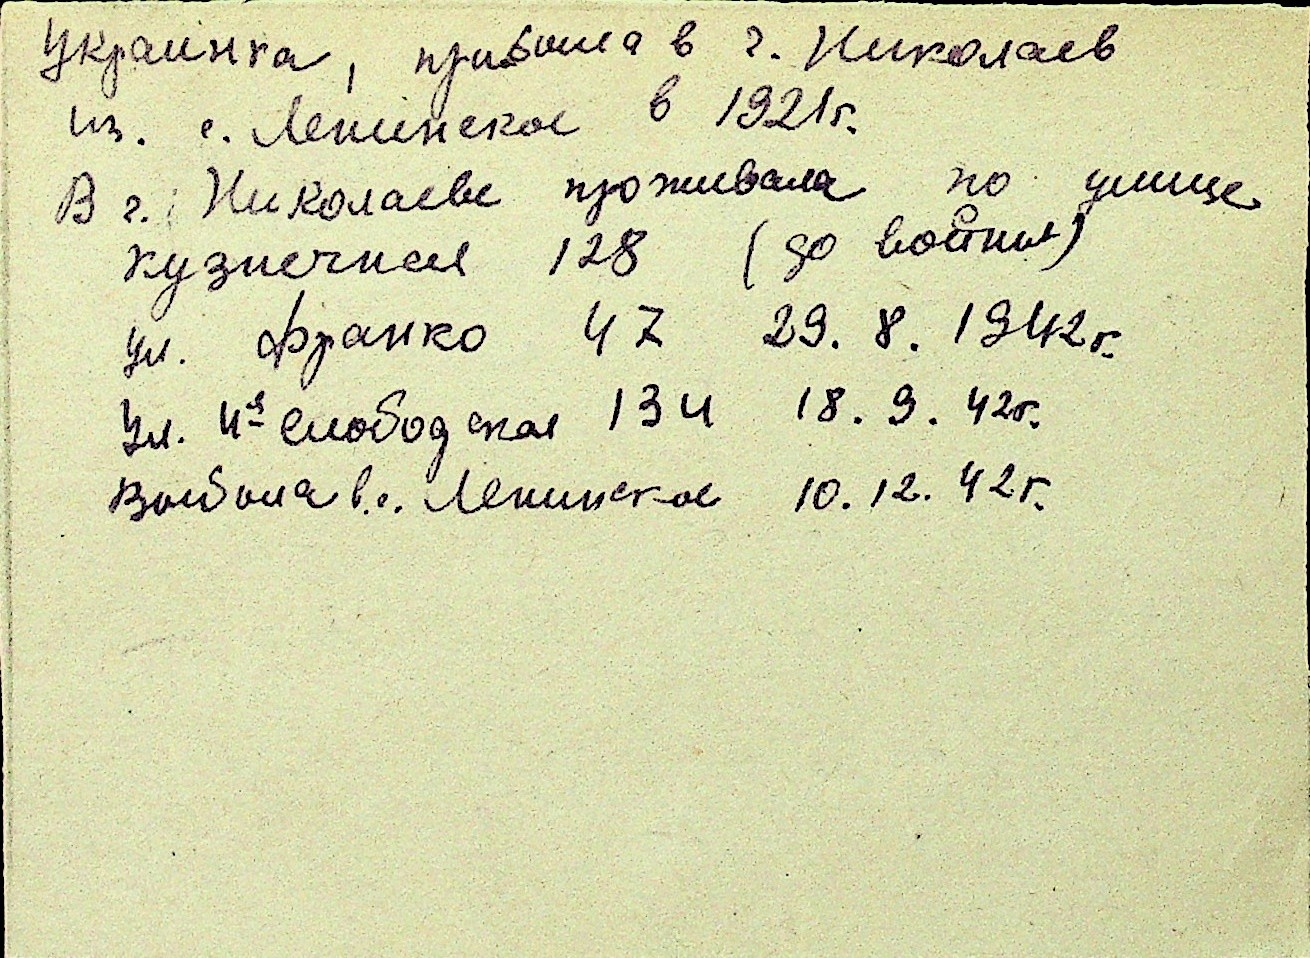 Украинка, прибыла в г. Николаев
из. с. Ленинское в 1921г.
В г. Николаеве проживала по улице
Кузнечная 128 (до войны)
ул. Франко 47 29. 8. 1942г.
ул. 4я Слободская 134 18. 9. 42г.
Выбыла в с. Ленинское 10. 12. 42г.